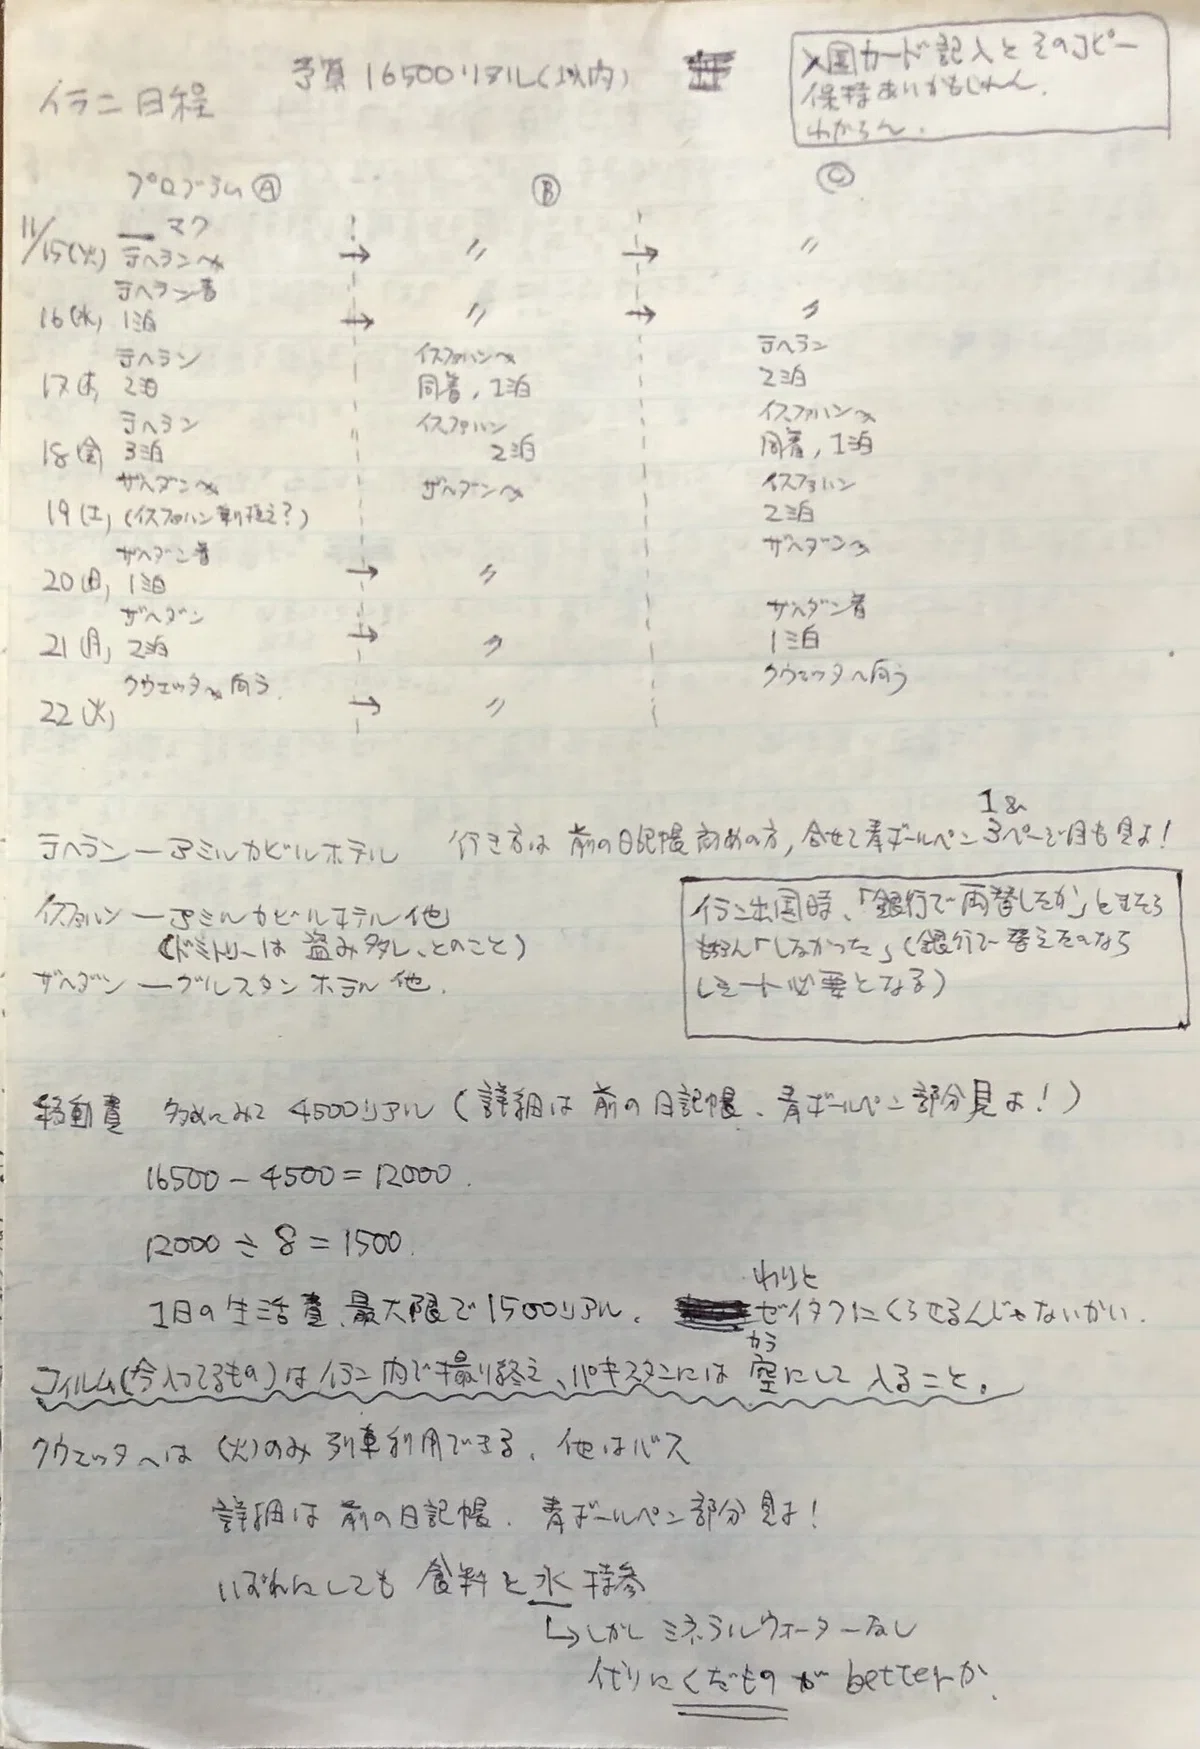 予算 16500リアル(以内)
イラン日程
入国カード記入とそのコピー
保持あいかもしれん.
わからん.
プログラムⒶ Ⓑ Ⓒ
マク
11/15(火) テヘランへ → 〃 → 〃
テヘラン着
16(水) 1泊 → 〃 → 〃
テヘラン イスファハンへ テヘラン
17(木) 2泊 同着, 1泊 2泊
テヘラン イスファハン イスファハンへ
18(金) 3泊 2泊 同着, 1泊
ザヘダンへ ザヘダンへ イスファハン
19(土) (イスファハン乗り換え?) 2泊
ザヘダン着 ザヘダンへ
20(日) 1泊 → 〃
ザヘダン ザヘダン着
21(月) 2泊 → 〃 1泊
クウェッタへ向う. クウェッタへ向う
22(火) → 〃
1&
テヘラン ー アミルカビルホテル 行き方は 前の日記帳 初めの方, 合せて青ボールペン 3ページ目も見よ!
イスファハン ー アミルカビルホテル他
(ドミトリーは盗み多し、とのこと)
ザヘダン ー グルスタンホテル他.
イラン出国時、「銀行で両替したか」ときそう
「しなかった」(銀行で替えたのなら
レシート必要となる)
移動費 多めにみて 4500リアル (詳細は 前の日記帳、青ボールペン部分見よ!)
16500 − 4500 = 12000.
12000 ÷ 8 = 1500.
1日の生活費 最大限で1500リアル.
わりと
ゼイタクにくらせるんじゃないかい.
フィルム(今入ってるもの)はイラン内で撮り終え、パキスタンには 空にして 入ること。
から
クウェッタへは (火)のみ列車利用できる. 他はバス
詳細は 前の日記帳. 青ボールペン部分見よ!
いずれにしても 食料と水 持参
↳しかし ミネラルウォーターなし
代りにくだものが betterか.